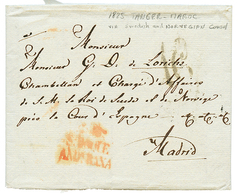 1825 TANGER - MAROC
via SWEDISH AND NORWEGIAN CONSUL
Monsieur
Monsieur G. D. de Lorichs
Chambellan et Chargé d'Affaires
de S. M. le Roi de Suède et de Norvège
près la Cour d'Espagne &c &c &c
Madrid
ANDALUSIA